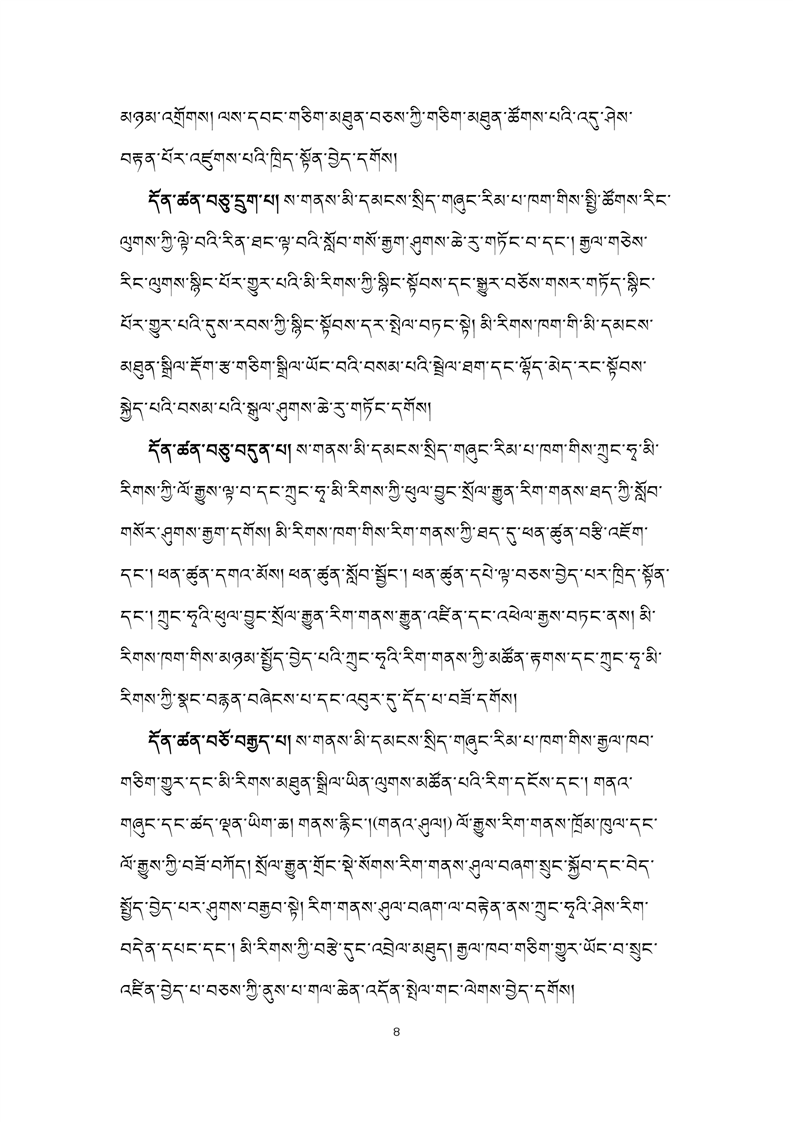 མཉམ་འགྲོགས། ལས་དབང་གཅིག་མཐུན་བཅས་ཀྱི་གཅིག་མཐུན་ཚོགས་པའི་འདུ་ཤེས་
བརྟན་པོར་འཛུགས་པའི་ཁྲིད་སྟོན་བྱེད་དགོས།
དོན་ཚན་བཅུ་དྲུག་པ། ས་གནས་མི་དམངས་སྲིད་གཞུང་རིམ་པ་ཁག་གིས་སྤྱི་ཚོགས་རིང་
ལུགས་ཀྱི་ལྟེ་བའི་རིན་ཐང་ལྟ་བའི་སློབ་གསོ་རྒྱག་ཤུགས་ཆེ་རུ་གཏོང་བ་དང་། རྒྱལ་གཅེས་
རིང་ལུགས་སྙིང་པོར་གྱུར་པའི་མི་རིགས་ཀྱི་སྙིང་སྟོབས་དང་སྒྱུར་བཅོས་གསར་གཏོད་སྙིང་
པོར་གྱུར་པའི་དུས་རབས་ཀྱི་སྙིང་སྟོབས་དར་སྤེལ་བཏང་སྟེ། མི་རིགས་ཁག་གི་མི་དམངས་
མཐུན་སྒྲིལ་རྡོག་རྩ་གཅིག་སྒྲིལ་ཡོང་བའི་བསམ་པའི་སྦྲེལ་ཐག་དང་ལྷོད་མེད་རང་སྟོབས་
སྐྱེད་པའི་བསམ་པའི་སྐུལ་ཤུགས་ཆེ་རུ་གཏོང་དགོས།
དོན་ཚན་བཅུ་བདུན་པ། ས་གནས་མི་དམངས་སྲིད་གཞུང་རིམ་པ་ཁག་གིས་ཀྲུང་ཧྭ་མི་
རིགས་ཀྱི་ལོ་རྒྱུས་ལྟ་བ་དང་ཀྲུང་ཧྭ་མི་རིགས་ཀྱི་ཕུལ་བྱུང་སྲོལ་རྒྱུན་རིག་གནས་ཐད་ཀྱི་སློབ་
གསོར་ཤུགས་རྒྱག་དགོས། མི་རིགས་ཁག་གིས་རིག་གནས་ཀྱི་ཐད་དུ་ཕན་ཚུན་བརྩི་འཇོག་
དང་། ཕན་ཚུན་དགའ་མོས། ཕན་ཚུན་སློབ་སྦྱོང་། ཕན་ཚུན་དཔེ་ལྟ་བཅས་བྱེད་པར་ཁྲིད་སྟོན་
དང་། ཀྲུང་ཧྭའི་ཕུལ་བྱུང་སྲོལ་རྒྱུན་རིག་གནས་རྒྱུན་འཛིན་དང་འཕེལ་རྒྱས་བཏང་ནས། མི་
རིགས་ཁག་གིས་མཉམ་སྤྱོད་བྱེད་པའི་ཀྲུང་ཧྭའི་རིག་གནས་ཀྱི་མཚོན་རྟགས་དང་ཀྲུང་ཧྭ་མི་
རིགས་ཀྱི་སྣང་བརྙན་བཞེངས་པ་དང་འབུར་དུ་དོད་པ་བཟོ་དགོས།
དོན་ཚན་བཅོ་བརྒྱད་པ། ས་གནས་མི་དམངས་སྲིད་གཞུང་རིམ་པ་ཁག་གིས་རྒྱལ་ཁབ་
གཅིག་གྱུར་དང་མི་རིགས་མཐུན་སྒྲིལ་ཡིན་ལུགས་མཚོན་པའི་རིག་དངོས་དང་། གནའ་
གཞུང་དང་ཚད་ལྡན་ཡིག་ཆ། གནས་རྙིང་།(གནའ་ཤུལ།) ལོ་རྒྱུས་རིག་གནས་ཁྲོམ་ཁུལ་དང་
ལོ་རྒྱུས་ཀྱི་བཟོ་བཀོད། སྲོལ་རྒྱུན་གྲོང་སྡེ་སོགས་རིག་གནས་ཤུལ་བཞག་སྲུང་སྐྱོབ་དང་བེད་
སྤྱོད་བྱེད་པར་ཤུགས་བརྒྱབ་སྟེ། རིག་གནས་ཤུལ་བཞག་ལ་བརྟེན་ནས་ཀྲུང་ཧྭའི་ཤེས་རིག་
བདེན་དཔང་དང་། མི་རིགས་ཀྱི་བརྩེ་དུང་འབྲེལ་མཐུད། རྒྱལ་ཁབ་གཅིག་གྱུར་ཡོང་བ་སྲུང་
འཛིན་བྱེད་པ་བཅས་ཀྱི་ནུས་པ་གལ་ཆེན་འདོན་སྤེལ་གང་ལེགས་བྱེད་དགོས།
8